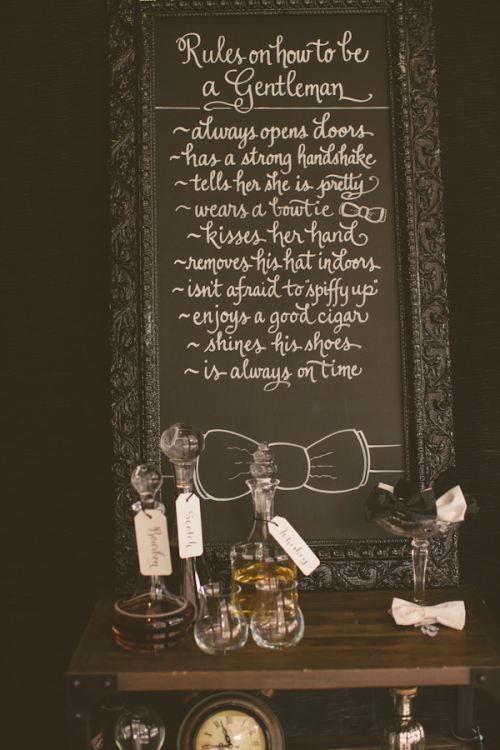 Rules on how to be
a Gentleman
~always opens doors
~has a strong handshake
~tells her she is pretty
~wears a bowtie
~kisses her hand
~removes his hat indoors
~isn't afraid to "spiffy up"
~enjoys a good cigar
~shines his shoes
~is always on time
Bourbon
Scotch
Whiskey